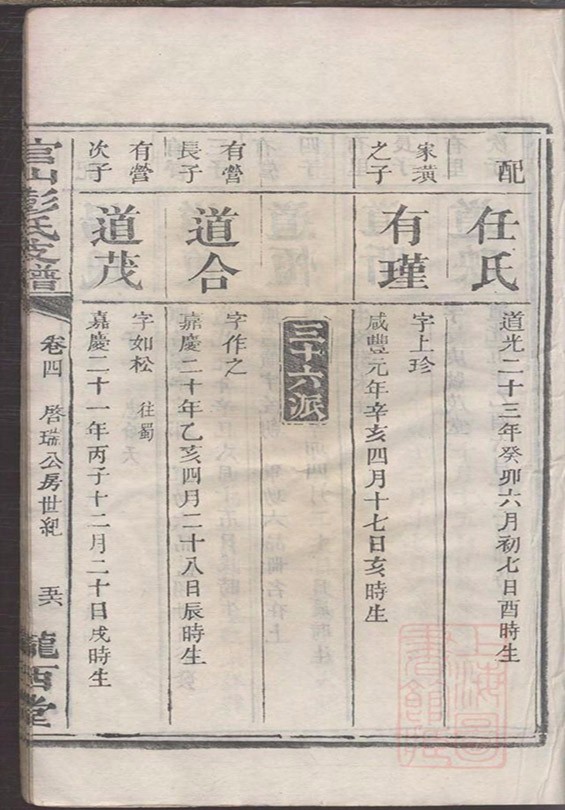 配
任氏
道光二十三年癸卯六月初七日酉時生
家璜
之子
有瑾
字上珍
咸豐元年辛亥四月十七日亥時生
三十六派
有營
長子
道合
字作之
嘉慶二十年乙亥四月二十八日辰時生
有營
次子
道茂
字如松 往蜀
嘉慶二十一年丙子十二月二十日戌時生
官山彭氏支譜
卷四 啓瑞公房世紀
隴西堂
上海圖書館藏